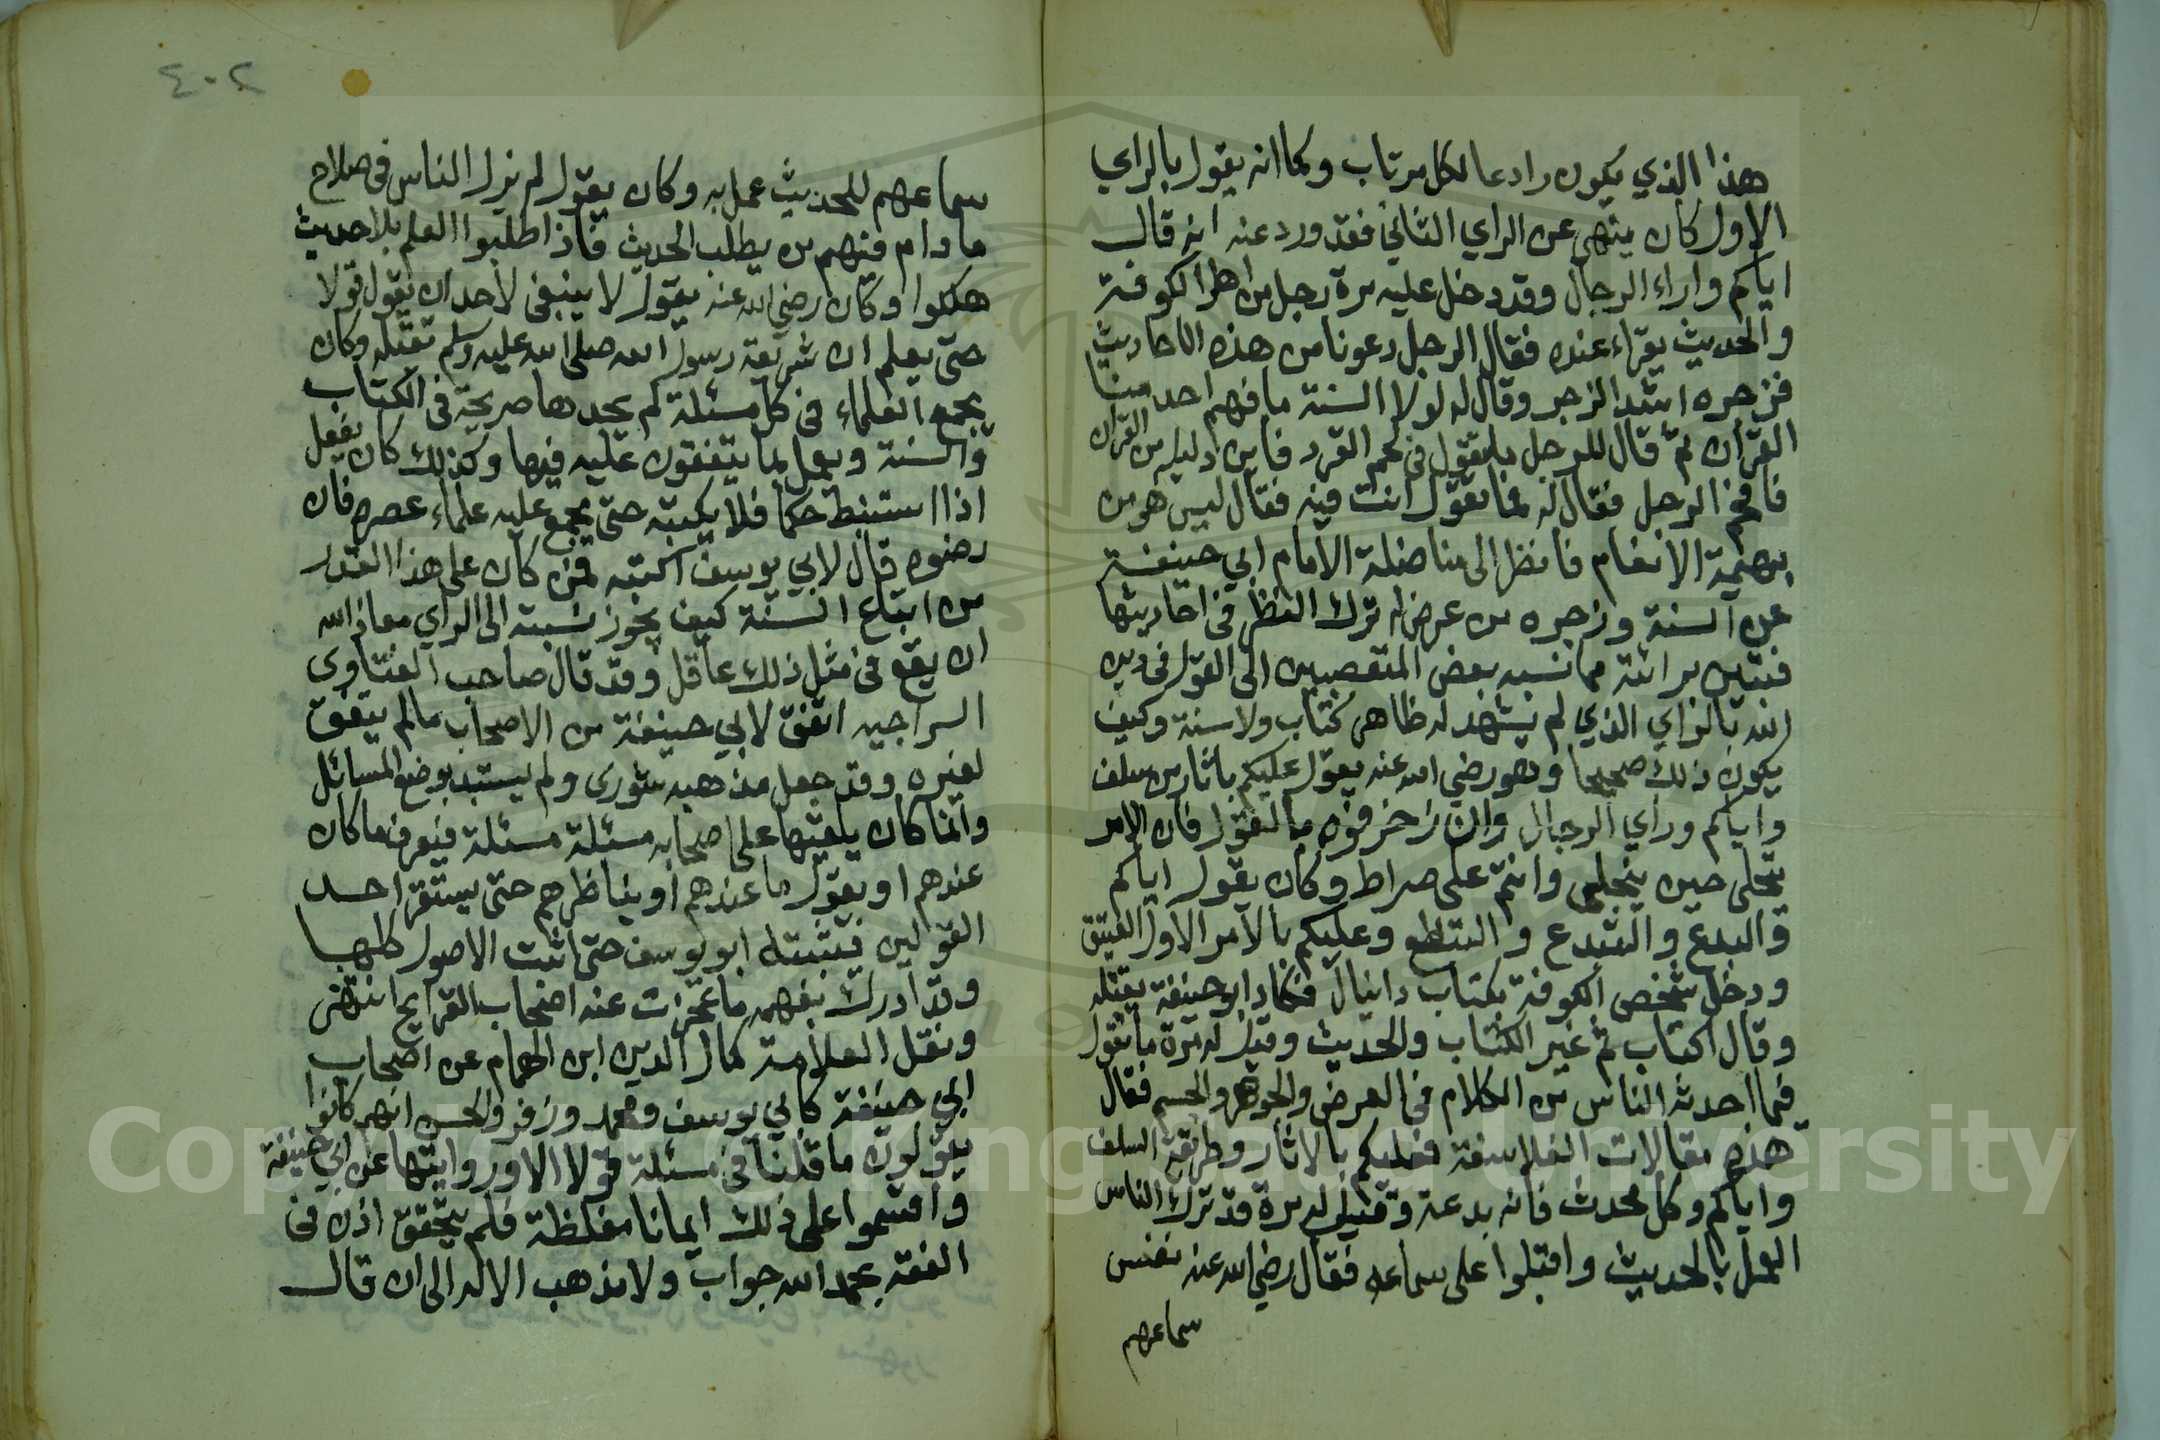 هذا الذي يكون رادعا لكل مرتاب وكما انه يقول بالراي
الاول كان ينهى عن الراي الثاني فقد ورد عنه انه قال
اياكم واراء الرجال وقد دخل عليه مرة رجل من اهل الكوفة
والحديث يقراء عنده فقال الرجل دعونا من هذه الاحاديث
فزجره اشد الزجر وقال له لولا السنة ما فهم احد منا
القرآن ثم قال للرجل ما تقول في لحم القرد فاين دليله من القرآن
فافحم الرجل فقال له فما تقول انت فيه فقال ليس هو من
بهيمة الانعام فانظر الى مناضلة الامام ابي حنيفة
عن السنة وزجره من عرض له ترك النظر في احاديثها
فتبين برائته مما نسبه بعض المتعصبين الى القول في دين
الله بالراي الذي لم يشهد له ظاهر كتاب ولا سنة وكيف
يكون ذلك صحيحا وهو رضي الله عنه يقول عليكم باثار من سلف
واياكم وراي الرجال وان زخرفوه بالقول فان الامر
ينجلى حين ينجلى وانتم على صراط وكان يقول اياكم
والبدع والتبدع والتنطع وعليكم بالامر الاول العتيق
ودخل شخص الكوفة بكتاب دانيال فكاد ابو حنيفة يقتله
وقال اكتاب ثم غير الكتاب والحديث وقيل له مرة ما تقول
فيما احدثه الناس من الكلام في العرض والجوهر والجسم فقال
هذه مقالات الفلاسفة فعليكم بالاثار وطريقة السلف
واياكم وكل محدث فانه بدعة وقيل له مرة قد ترك الناس
العمل بالحديث واقبلوا على سماعه فقال رضي الله عنه نفس
سماعهم
٤٠٢
سماعهم للحديث عمل به وكان يقول لم يزل الناس في صلاح
ما دام فيهم من يطلب الحديث فاذا طلبوا العلم بلا حديث
هلكوا وكان رضي الله عنه يقول لا ينبغي لاحد ان يقول قولا
حتى يعلم ان شريعة رسول الله صلى الله عليه وسلم تقبله وكان
يجمع العلماء في كل مسئلة لم يجدها صريحة في الكتاب
والسنة ويعمل بما يتفقون عليه فيها وكذلك كان يفعل
اذا استنبط حكما فلا يكتبه حتى يجمع عليه علماء عصره فان
رضوه قال لابي يوسف اكتبه فمن كان على هذا القدر
من اتباع السنة كيف يجوز نسبته الى الراي معاذ الله
ان يقع في مثل ذلك عاقل وقد قال صاحب الفتاوى
السراجيه اتفق لابي حنيفة من الاصحاب ما لم يتفق
لغيره وقد جعل مذهبه شورى ولم يستبد بوضع المسائل
وانما كان يلقيها على اصحابه مسئلة مسئلة فيعرف ما كان
عندهم او يقول ما عنده او يناظرهم حتى يستقر احد
القولين فيثبته ابو يوسف حتى اثبت الاصول كلها
وقد ادرك بفهمه ما عجزت عنه اصحاب القرايح انتهى
ونقل العلامة كمال الدين ابن الهمام عن اصحاب
ابي حنيفة كابي يوسف ومحمد وزفر والحسن انهم كانوا
يقولون ما قلنا في مسئلة قولا الا وروايتها عن ابي حنيفة
واقسموا على ذلك ايمانا مغلظة فلم يتحقق اذن في
الفقه بحمد الله جواب ولا مذهب الا له الى ان قال
Copyright © King Saud University